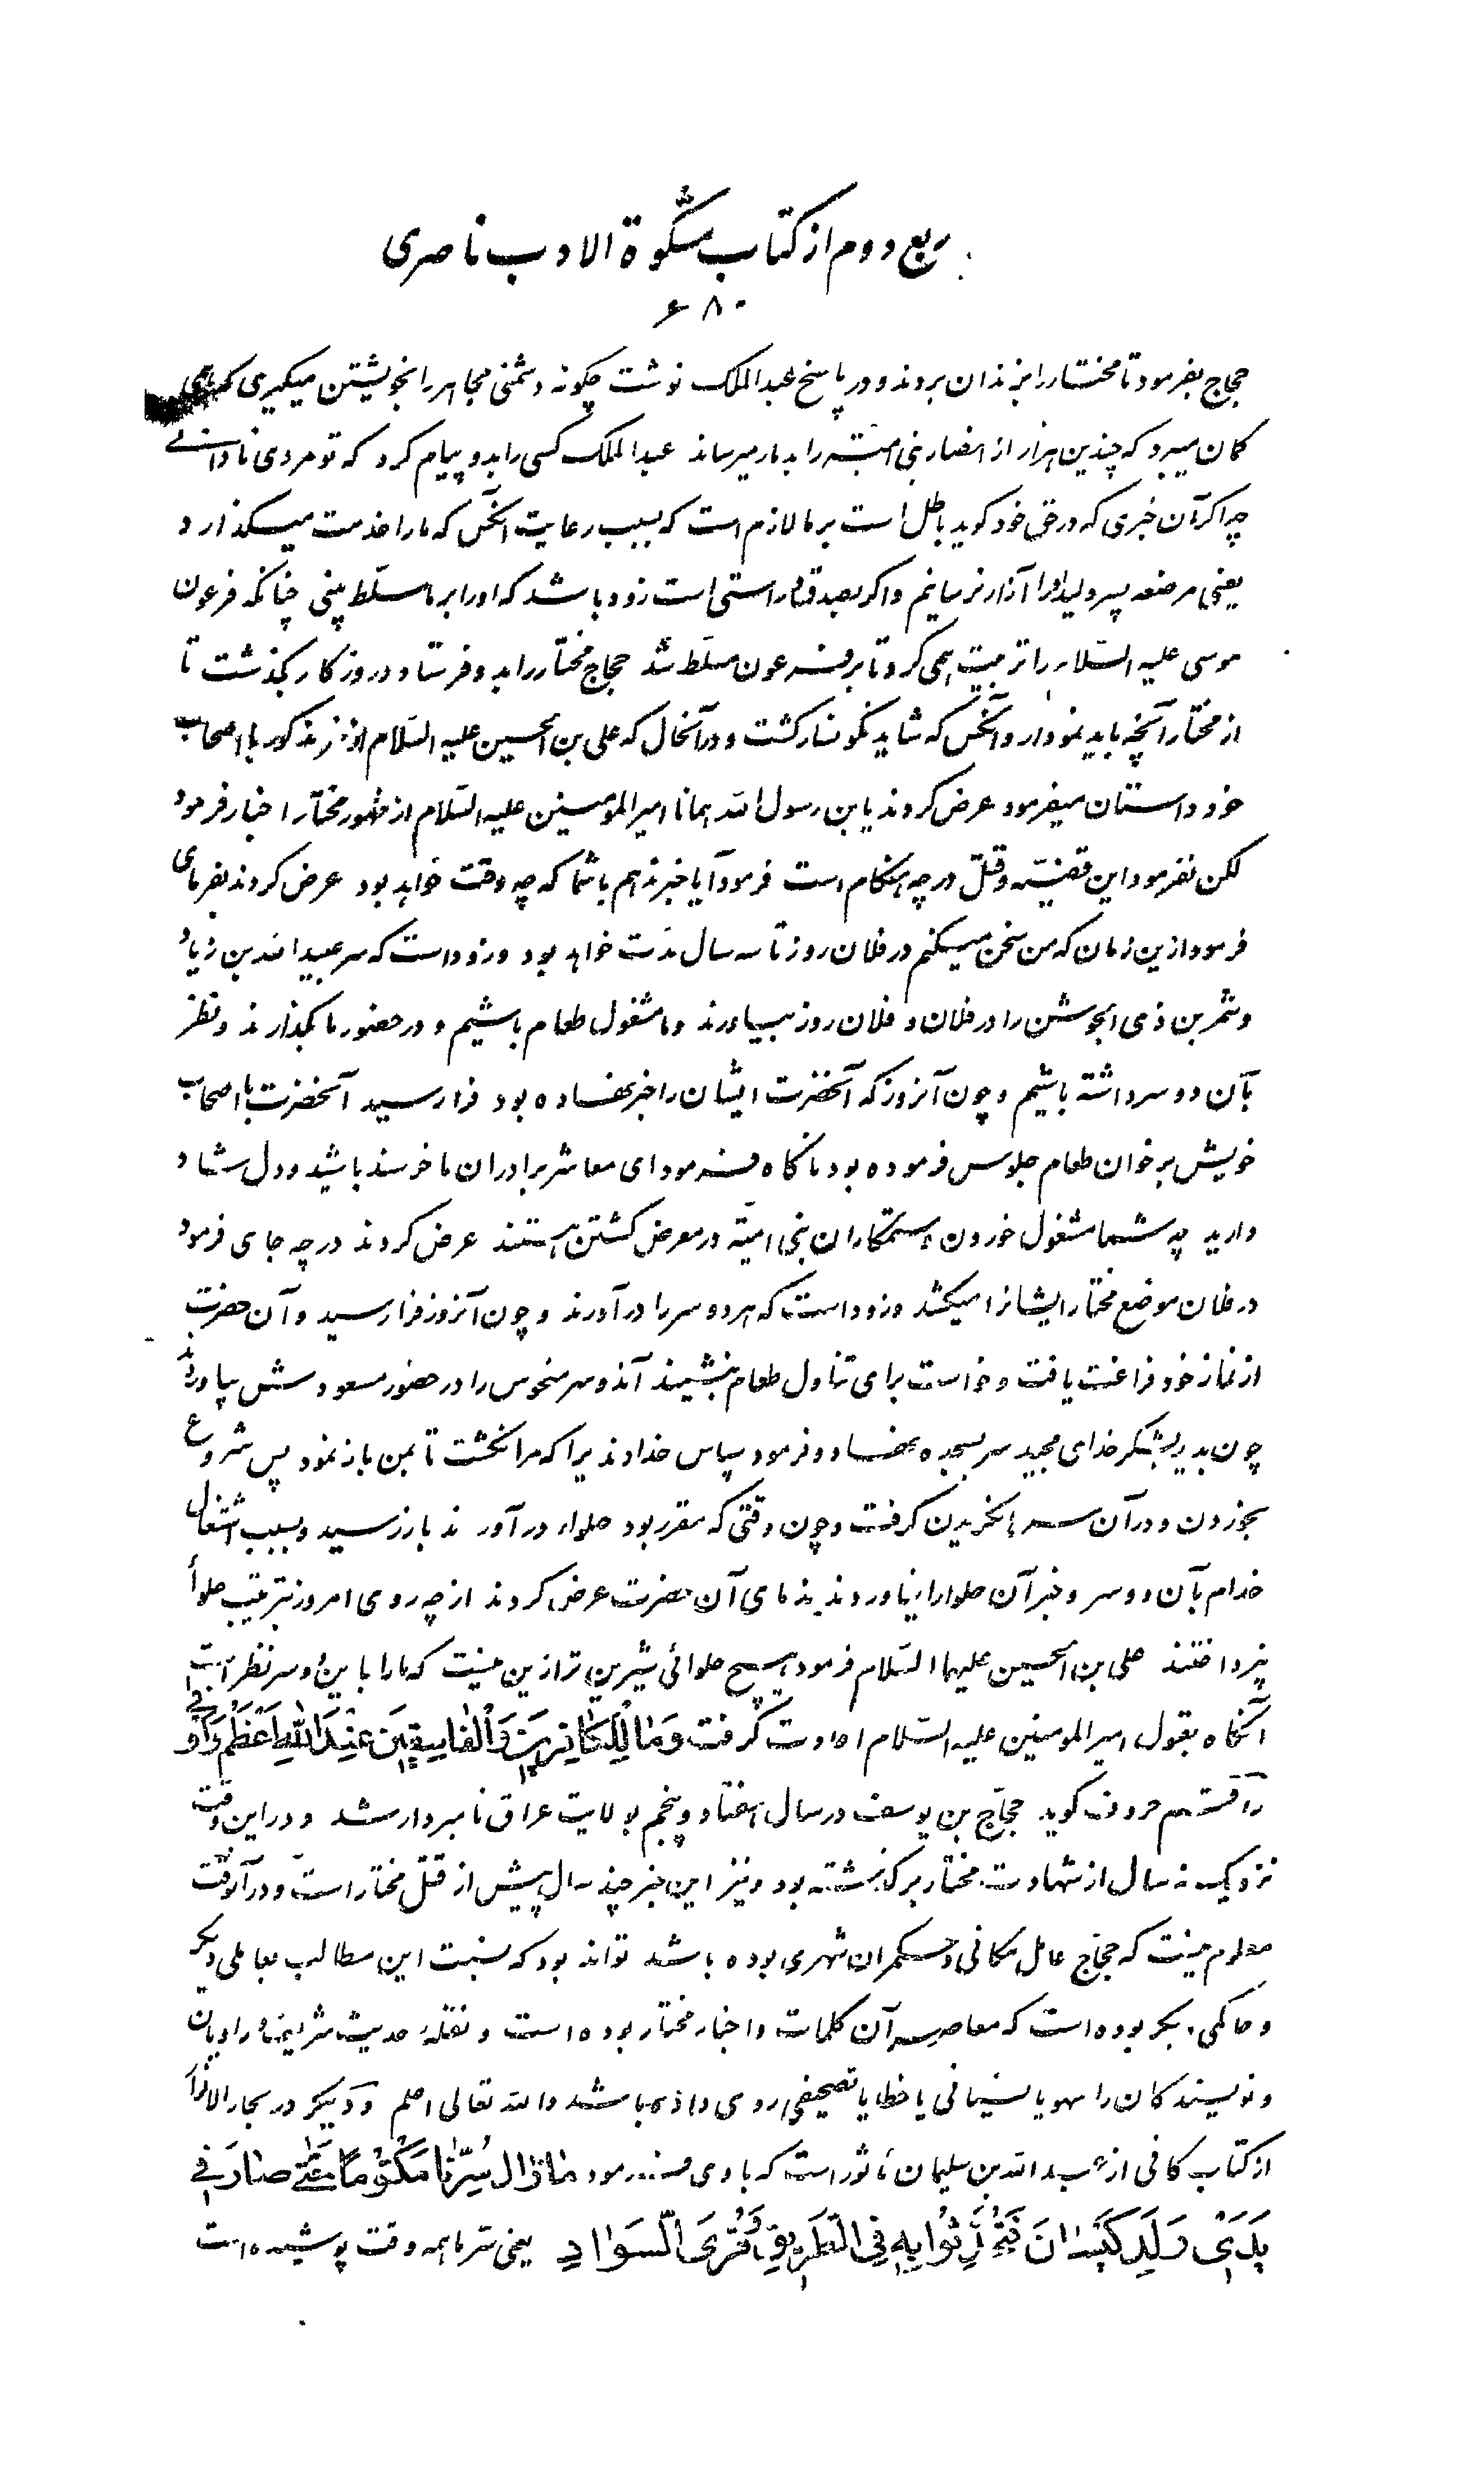 ربع دوم از کتاب مشکوة الادب ناصری
۶۸۰
حجاج بفرمود تا مختار را بزندان بردند و در پاسخ عبدالملک نوشت چگونه دشمنی مجاهر را بخویشتن میگیری که همی
کمان میبرد که چندین هزار از انصار بنی امیّه را بدمار میرساند عبدالملک کسی را بدو پیام کرد که تو مردی نادانی
چه اگر آن خبری که در حق خود گوید باطل است بر ما لازم است که بسبب رعایت آنکس که ما را خدمت میگذارد
یعنی مرضعه پسر ولید او را آزار نرسانیم و اگر بصدق و راستی است زود باشد که او را بر ما مسلّط بینی چنانکه فرعون
موسی علیه السّلام را تربیت همی کرد تا بر فرعون مسلّط شد حجاج مختار را بدو فرستاد و روزگار بگذشت تا
از مختار آنچه باید نمودار و آنکس که شاید نگونسار گشت و در آنحال که علی بن الحسین علیه السّلام از مذکور با اصحاب
خود داستان میفرمود عرض کردند یا بن رسول الله همانا امیر المؤمنین علیه السّلام از ظهور مختار اخبار فرمود
لکن نفرمود این قضیّه و قتل در چه هنگام است فرمود آیا خبر ندهم با شما که چه وقت خواهد بود عرض کردند بفرمای
فرمود ازین زمان که من سخن میکنم در فلان روز تا سه سال مدّت خواهد بود و زود است که سر عبید الله بن زیاد
و شمر بن ذی الجوشن را در فلان و فلان روز بیاورند و ما مشغول طعام باشیم و در حضور ما بگذارند و نظر
بآن دو سر داشته باشیم و چون آنروز که آنحضرت ایشان را خبر نهاده بود فرا رسید آنحضرت با اصحاب
خویش بر خوان طعام جلوس فرموده بود ناگاه فرمود ای معاشر برادران ما خرسند باشید و دل شاد
دارید چه شما مشغول خوردن و ستمکاران بنی امیّه در معرض کشتن هستند عرض کردند در چه جای فرمود
در فلان موضع مختار ایشانرا میکشد و زود است که هر دو سر را در آورند و چون آنروز فرا رسید و آن حضرت
از نماز خود فراغت یافت و خواست برای تناول طعام بنشیند آندو سر منحوس را در حضور مسعودش بیاوردند
چون بدید بشکر خدای مجید سر بسجده نهاد و فرمود سپاس خداوندیرا که مرا نکشت تا بمن باز نمود پس شروع
بخوردن و در آن سر بنگریدن گرفت و چون وقتی که مقرر بود حلواء در آورند باز رسید و بسبب اشتغال
خدام بآن دو سر و خبر آن حلوا را نیاوردند ندمای آن حضرت عرض کردند از چه روی امروز بترتیب حلوأ
نپرداختند علی بن الحسین علیهما السّلام فرمود هیچ حلوائی شیرین تر ازین نیست که ما را باین دو سر نظر است
آنگاه بقول امیر المومنین علیه السّلام اعادت گرفت وَمَا لِلْكَافِرِينَ وَالْفَاسِقِينَ عِنْدَ اللهِ أَعْظَمُ وَأَوْفى
راقم حروف گوید حجّاج بن یوسف در سال هفتاد و پنجم بولایت عراق نامبردار شد و در این وقت
نزدیک نه سال از شهادت مختار بر گذشته بود و نیز این خبر چند سال پیش از قتل مختار است و در آنوقت
معلوم نیست که حجّاج عامل مکانی و حکمران شهری بوده باشد تواند بود که نسبت این مطالب بعاملی دیگر
و حاکمی دیگر بوده است که معاصر آن کلمات و اخبار مختار بوده است و نقلهٔ حدیث شریف و راویان
و نویسندکان را سهو یا نسیانی یا خطا یا تصحیفی روی داده باشد و الله تعالی اعلم و دیگر در بحار الانوار
از کتاب کافی از عبدالله بن سلیمان مأثور است که با وی فرمود مَا زَالَ سِرُّنَا مَكْتُومًا حَتّى صَارَ فِي
يَدَيْ وَلَدِ كَيْسَانَ فَتَحَدَّثُوا بِهِ فِي الطَّرِيقِ وَقُرَى السَّوَادِ یعنی سّر ما همه وقت پوشیده است